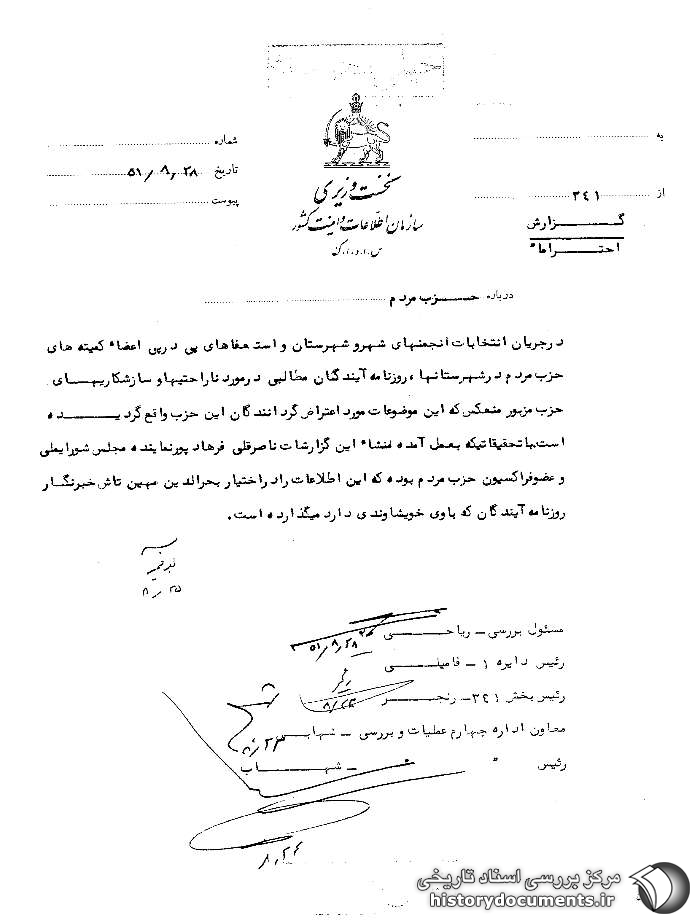 خیلی محرمانه
به
شماره
تاریخ ۵۱/۸/۲۸
پیوست
از ۳٤۱
نخست وزیری
سازمان اطلاعات و امنیت کشور
س.ا.و.ا.ک
گزارش
احتراماً
درباره حزب مردم
درجریان انتخابات انجمنهای شهرو شهرستان و استعفاهای پی درپی اعضاء کمیته های
حزب مردم درشهرستانها، روزنامه آیندگان مطالبی درمورد ناراحتیهاو سازشکاریهای
حزب مزبور منعکس که این موضوعات مورد اعتراض گردانندگان این حزب واقع گردیده
است.با تحقیقاتیکه بعمل آمده منشاء این گزارشات ناصرقلی فرهاد پورنماینده مجلس شورایملی
و عضوفراکسیون حزب مردم بوده که این اطلاعات رادراختیار بحرالدین مهین تاش خبرنگار
روزنامه آیندگان که باوی خویشاوندی دارد میگذارده است.
مسئول بررسی - ریاحی
۵۱/۸/۲۸
رئیس دایره ۱ - فامیلی
رئیس بخش ۳٤۱ - رنجبر
معاون اداره چهارم عملیات و بررسی - شهابی
رئیس " " - شهاب
مرکز بررسی اسناد تاریخی
historydocuments.ir